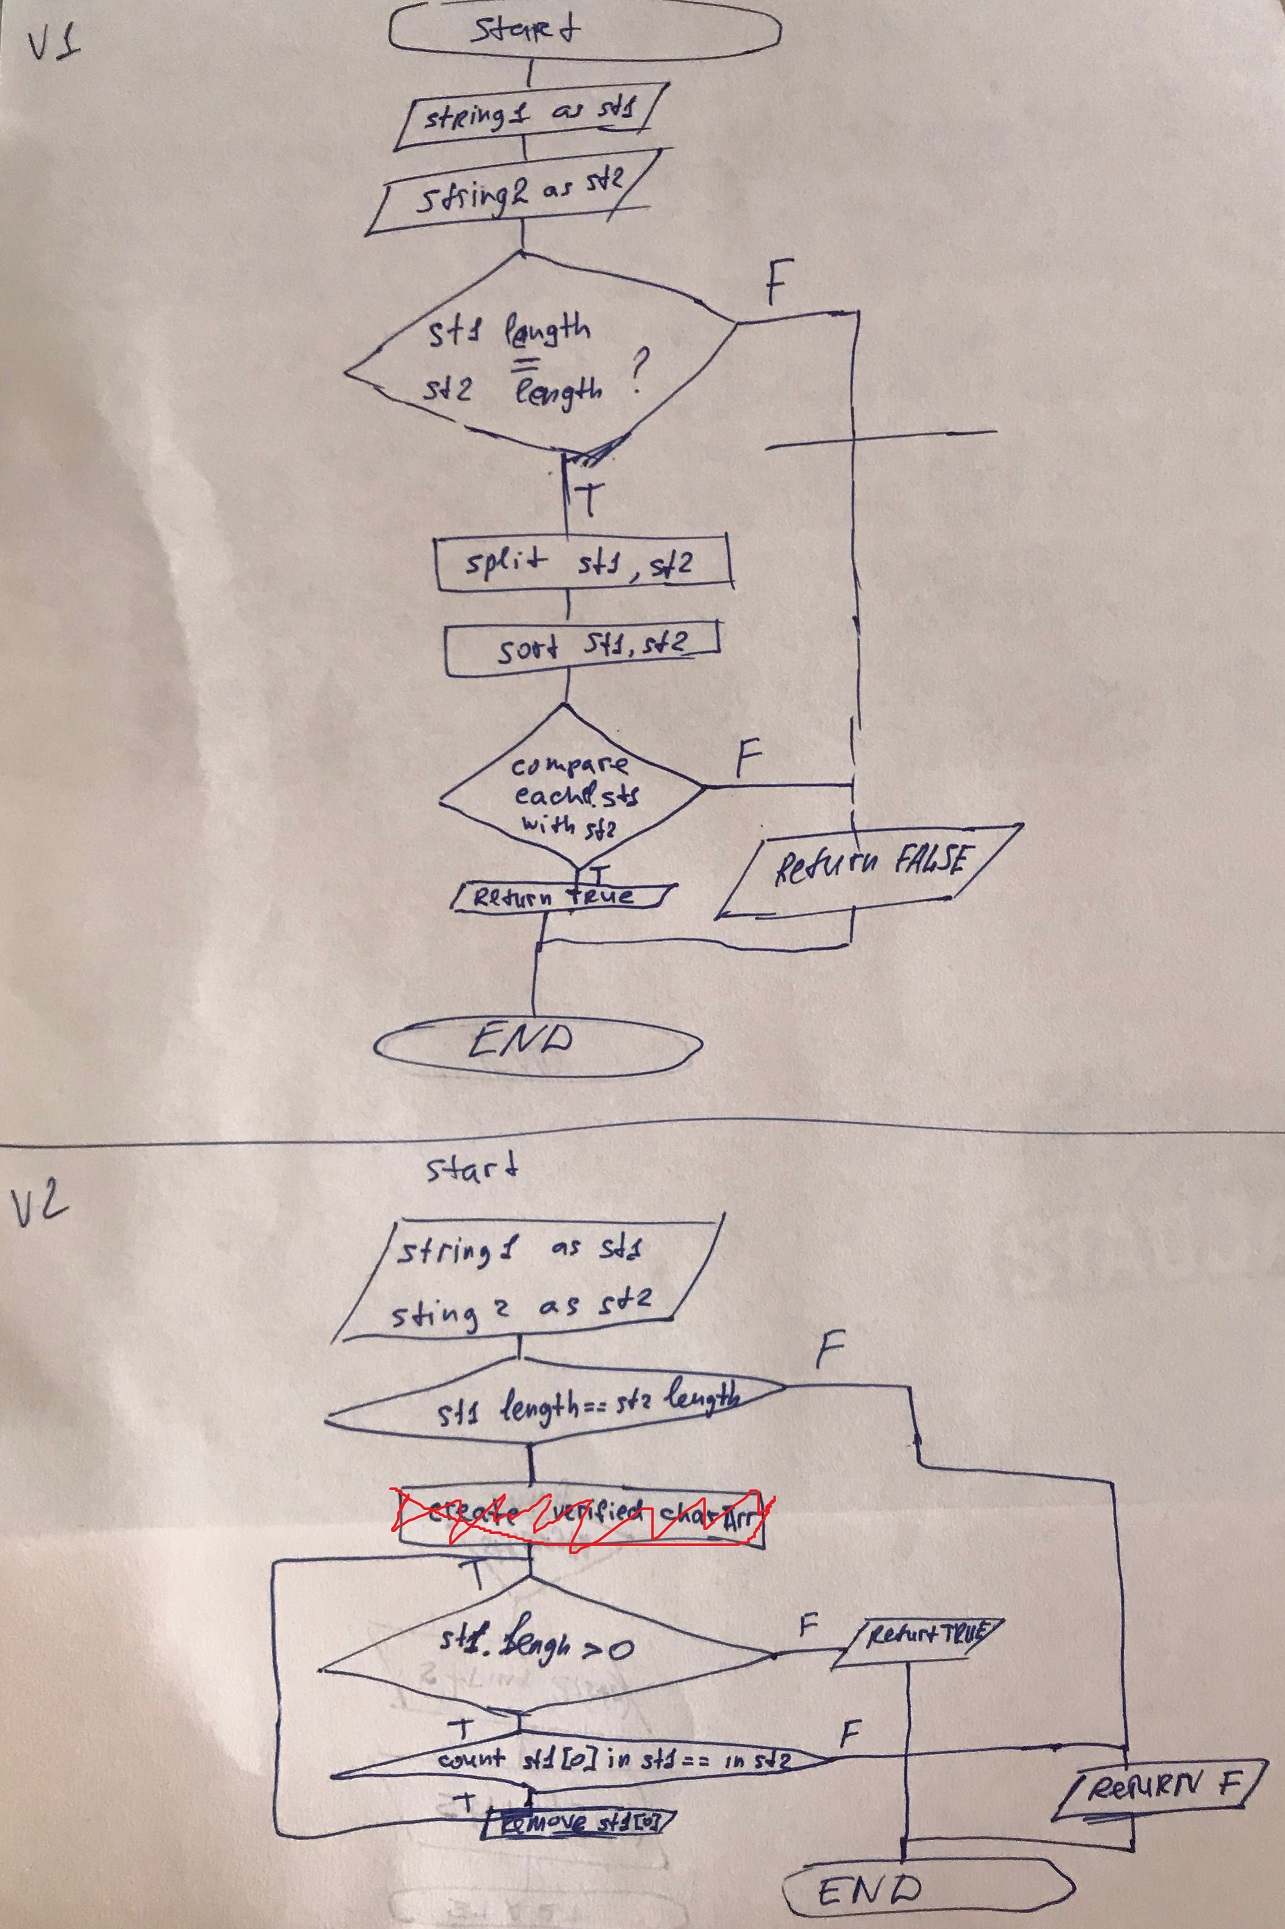 V1
Start
string1 as st1
string2 as st2
F
st1 length
=
st2 length ?
T
split st1, st2
sort st1, st2
F
compare
each st1
with st2
T
Return TRUE
Return FALSE
END
V2
start
string1 as st1
sting 2 as st2
F
st1 length == st2 length
create verified charArr
T
st1.lengh > 0
F
Return TRUE
T
F
count st1[0] in st1 == in st2
T
Remove st1[0]
RETURN F
END